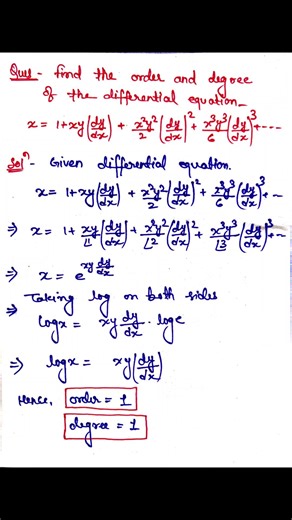 Ques - find the order and degree
of the differential equation -
x = 1+xy(dy/dx) + x²y²/2 (dy/dx)² + x³y³/6 (dy/dx)³ + ---
Solⁿ - Given differential equation.
x = 1+xy(dy/dx) + x²y²/2 (dy/dx)² + x³y³/6 (dy/dx)³ + --
⇒ x = 1+ xy/⌊1 (dy/dx) + x²y²/⌊2 (dy/dx)² + x³y³/⌊3 (dy/dx)³ + --
⇒ x = e^(xy dy/dx)
⇒ Taking log on both sides
logx = xy dy/dx · loge
⇒ logx = xy(dy/dx)
Hence, order = 1
degree = 1